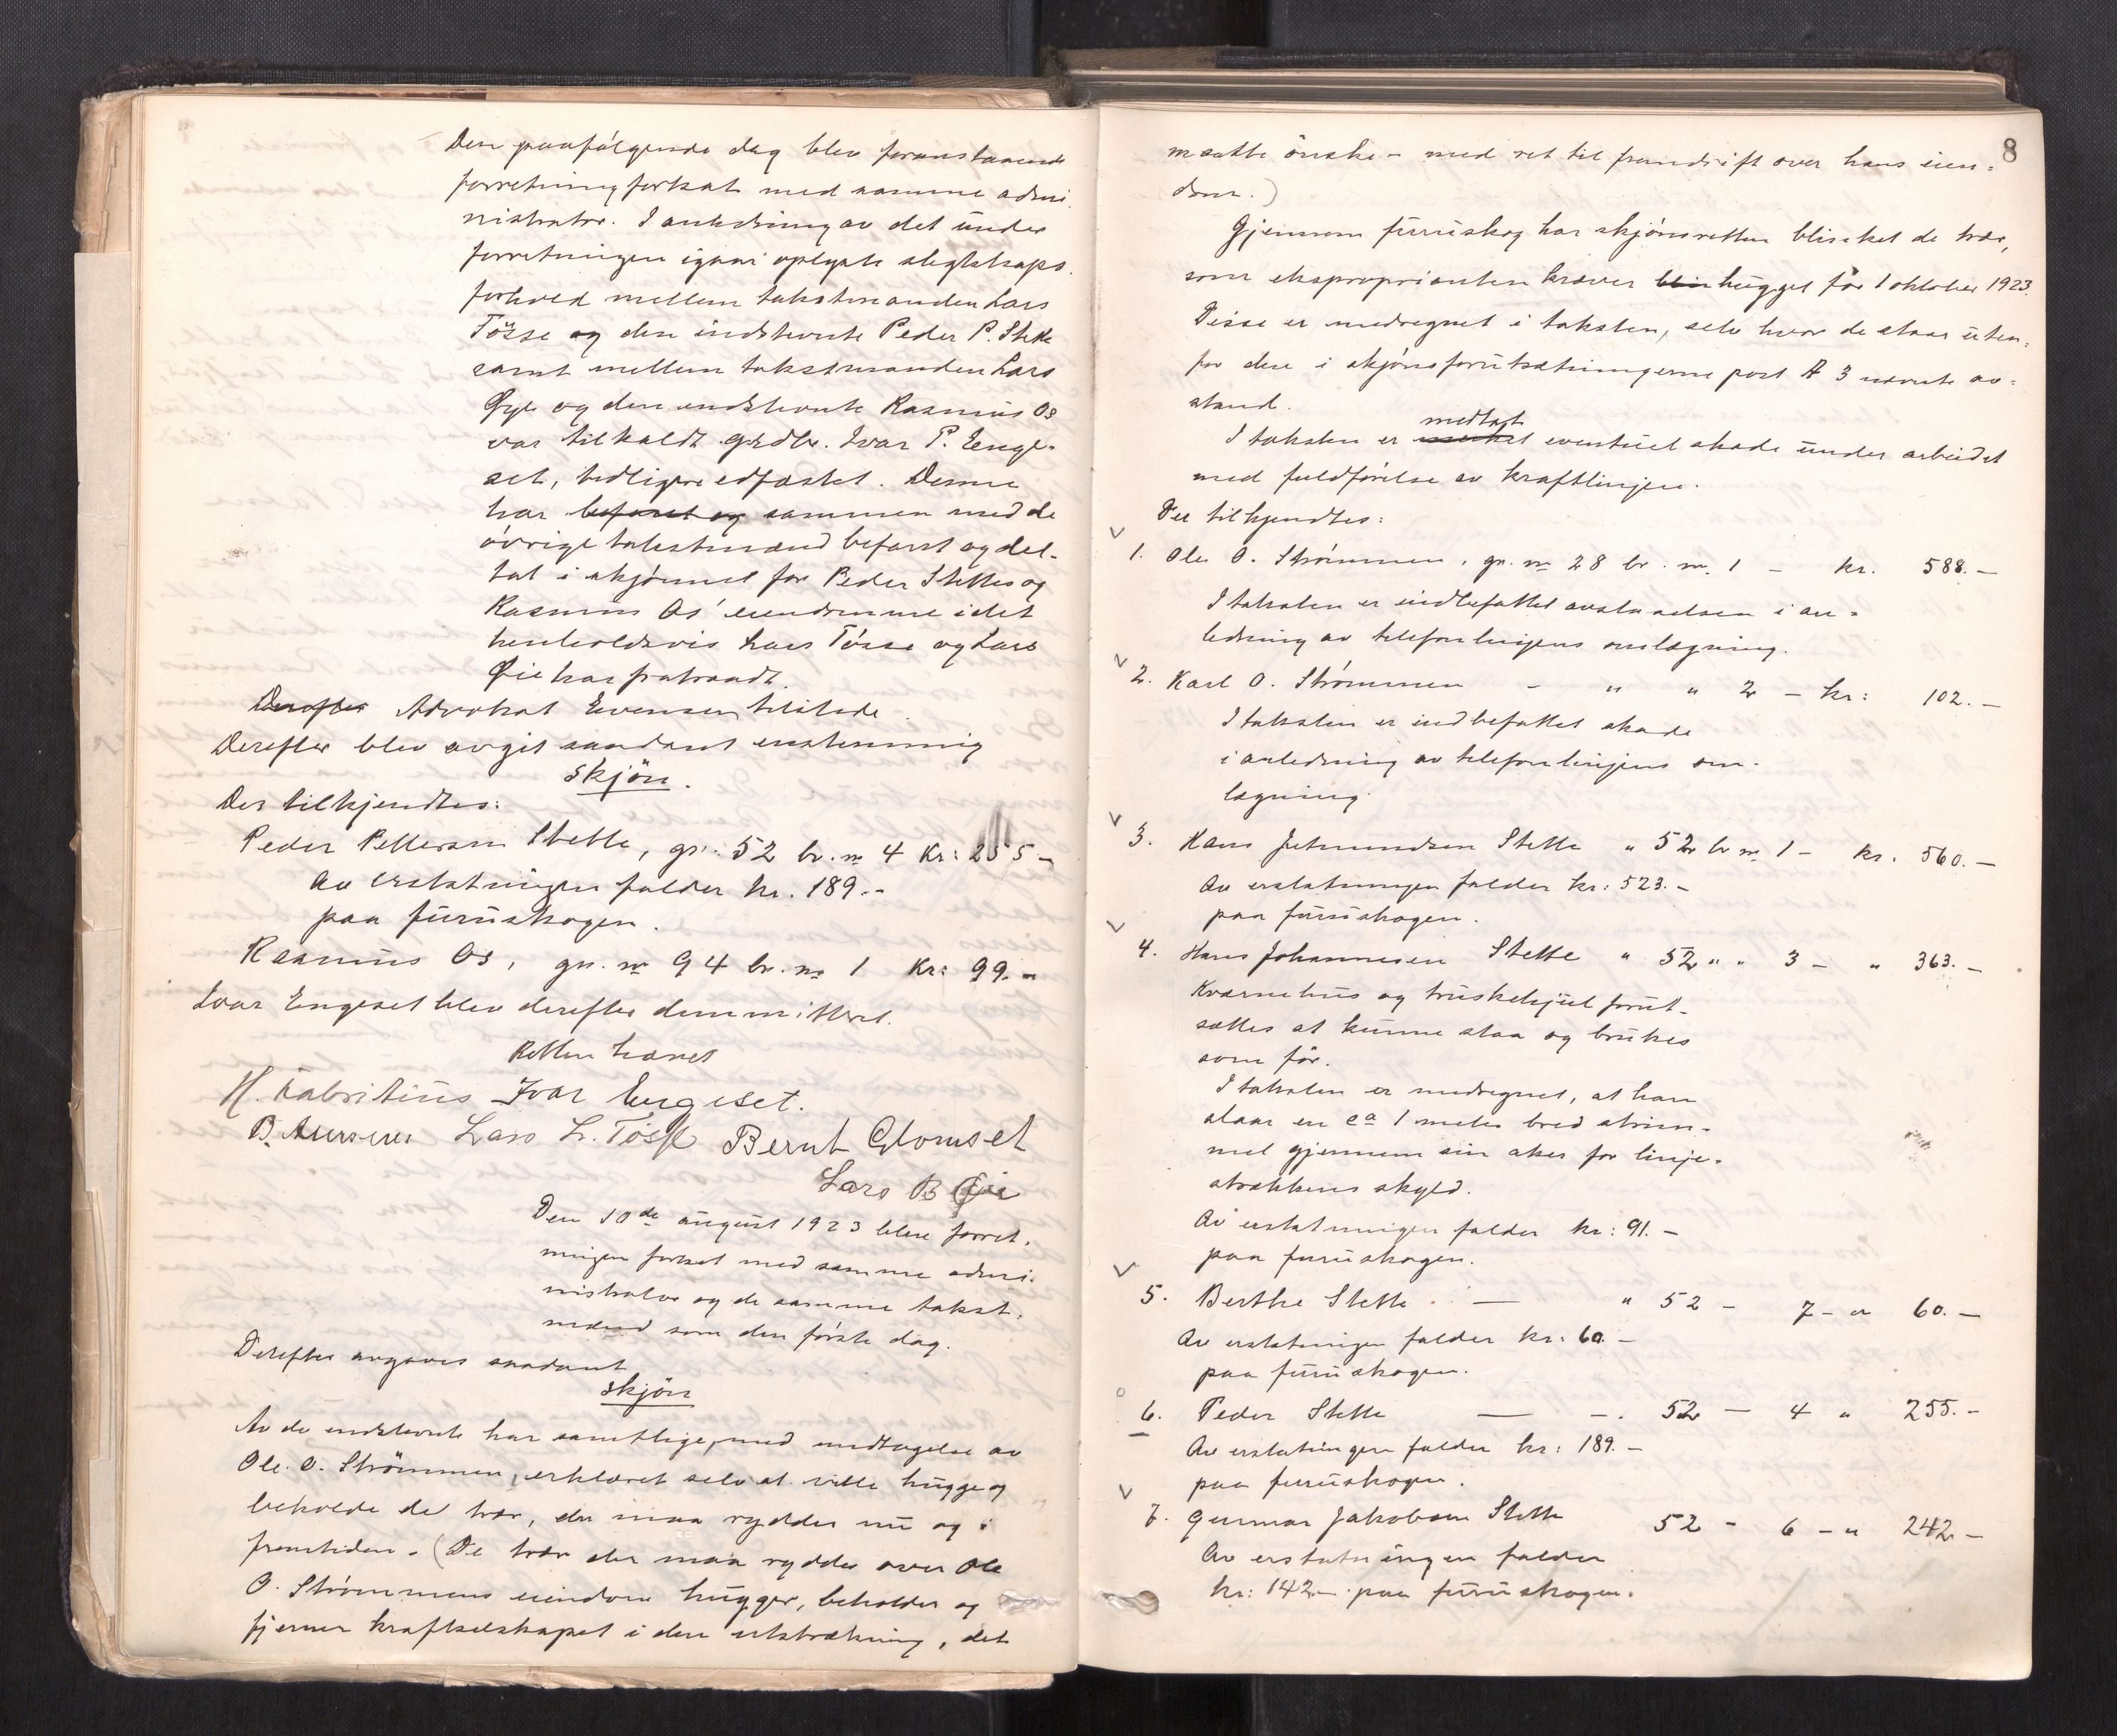 Den paafølgende dag blev foranstaaende
forretning fortsat med samme admi
nistrator. I anledning av det under
forretningen igaar oplyste slegtskaps-
forhold mellem takstmanden Lars
Tösse og den indstevnte Peder P. Stette
samt mellem takstmanden Lars
Øye og den indstevnte Rasmus Os
var tilkaldt grdbr. Ivar P. Enge-
set, tidligere edfæstet. Denne
har befaret og sammen med de
øvrige takstmænd befaret og del-
tat i skjønnet for Peder Stettes og
Rasmus Os' eiendomme idet
henholdsvis Lars Tösse og Lars
Øie har fratraadt.
Derefter Advokat Evensen tilstede.
Derefter blev avgit saadant enstemmig
Skjön.
Der tilkjendtes:
Peder Petterson Stette, gr. 52 br. nr 4 Kr: 255 -
Av erstatningen falder kr. 189.-
paa furuskogen.
Rasmus Os, gr. nr 94 br. nr 1 Kr: 99.-
Ivar Engeset blev derefter demmittert.
Retten hævet
H. Fabritius Ivar Engeset.
B. Lars L. Tösse Bernt Glomset
Lars B Øie
Den 10de august 1923 blev forret-
ningen fortsat med samme admi-
nistrator og de samme takst-
mænd som den første dag.
Derefter avgaves saadant
Skjön
Av de indstevnte har samtlige, med undtagelse av
Ole O. Strömmen, erklæret selv at ville hugge og
beholde de trær, der maa ryddes nu og i
fremtiden. (De trær der maa ryddes over Ole
O. Strømmens eiendom hugger, beholder og
fjerner kraftselskapet i den utstrækning, det
8
maatte önske - med ret til framdrift over hans eien-
dom.)
Gjennem furuskog har skjönsretten blinket de trær,
som eksproprianten kræver hugget før 1 oktober 1923.
Disse er medregnet i taksten, selv hvor de staar uten-
for den i skjønsforutsætningerne post A 3 nævnte av-
stand.
medtat
I taksten er eventuel skade under arbeidet
med fuldførelse av kraftlinjen.
Der tilkjendtes:
1. Ole O. Strömmen, gr. nr 28 br. nr. 1 - kr. 588.-
I taksten er indbefattet avstaaelsen i an-
ledning av telefonlinjens omlægning.
2. Karl O. Strömmen - " " 2 - kr: 102.-
I taksten er indbefattet skade
i anledning av telefonlinjens om-
lægning.
3. Hans Jetmundsen Stette " 52 br nr 1 - kr. 560.-
Av erstatningen falder kr: 523.-
paa furuskogen.
4. Hans Johannesen Stette " 52 " " 3 - " 363.-
Kværnehus og truskehjul forut-
sættes at kunne staa og brukes
som før.
I taksten er medregnet, at han
slaar en ca 1 meter bred strim-
mel gjennem sin aker for linje-
strækkens skyld.
Av erstatningen falder kr: 91.-
paa furuskogen.
5. Berthe Stette - " 52 - 7 - " 60.-
Av erstatningen falder kr: 60.-
paa furuskogen.
6. Peder Stette - - . 52 - 4 " 255.-
Av erstatningen falder kr: 189.-
paa furuskogen.
7. Gunnar Jakobsen Stette 52 - 6 - " 242.-
Av erstatningen falder
kr: 142.- paa furuskogen.